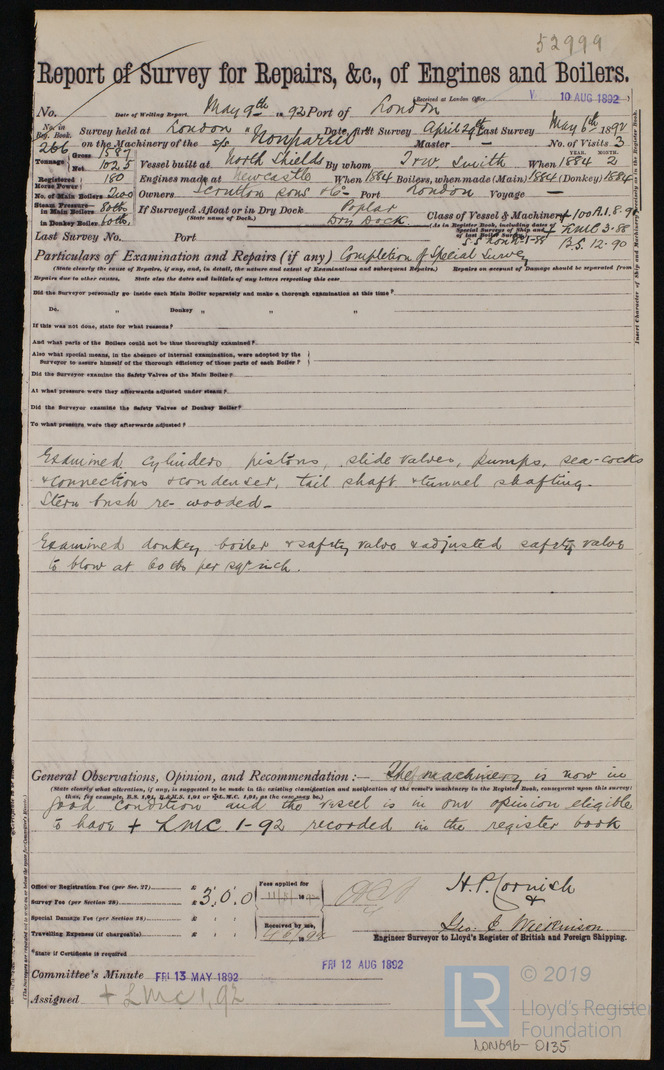 52999
Report of Survey for Repairs, &c., of Engines and Boilers.
Received at London Office 10 AUG 1892
No. Date of Writing Report May 9th 1892 Port of London
No. in Reg. Book. Survey held at London Date, first Survey April 29th Last Survey May 6th 1892
266 on the Machinery of the s/s "Nonpareil" Master — No. of Visits 3
Tonnage Gross 1587 Net 1025 Vessel built at North Shields By whom T & W Smith When 1884 2
YEAR. MONTH.
Registered Horse Power 180 Engines made at Newcastle When 1884 Boilers, when made (Main) 1884 (Donkey) 1884
No. of Main Boilers Owners Scrutton Sons & Co Port London Voyage —
Steam Pressure in Main Boilers 80 lbs If Surveyed Afloat or in Dry Dock Poplar Class of Vessel & Machinery + 100 A.1. 8.91
in Donkey Boiler 60 lbs. (State name of Dock.) Dry Dock (As in Register Book, including dates of Special Surveys of Ship and of last Boiler Survey) + LMC 3.88
Last Survey No. Port B.S. 12.90
Particulars of Examination and Repairs (if any) Completion of Special Survey
(State clearly the cause of Repairs, if any, and, in detail, the nature and extent of Examinations and subsequent Repairs.) Repairs on account of Damage should be separated from
Repairs due to other causes. State also the dates and initials of any letters respecting this case
Did the Surveyor personally go inside each Main Boiler separately and make a thorough examination at this time?
Do. " Donkey " " "
If this was not done, state for what reasons?
And what parts of the Boilers could not be thoroughly examined?
Also what special means, in the absence of internal examination, were adopted by the
Surveyor to assure himself of the thorough efficiency of those parts of each Boiler?
Did the Surveyor examine the Safety Valves of the Main Boiler?
At what pressure were they afterwards adjusted under steam?
Did the Surveyor examine the Safety Valves of Donkey Boiler?
To what pressure were they afterwards adjusted?
Examined cylinders, pistons, slide valves, pumps, sea-cocks
& connections & condenser, tail shaft & tunnel shafting.
Stern bush re-wooded—
Examined donkey boiler & safety valve & adjusted safety valve
to blow at 60 lbs per sqr inch.
General Observations, Opinion, and Recommendation:— The machinery is now in
(State clearly what alteration, if any, is suggested to be made in the existing classification and notification of the vessel's machinery in the Register Book, consequent upon this survey;
good condition and the vessel is in our opinion eligible
to have + LMC. 1-92 recorded in the register book
Office or Registration Fee (per Sec. 27) £
Survey Fee (per Section 28) £ 3.0.0
Special Damage Fee (per Section 28) £
Travelling Expenses (if chargeable) £
Fees applied for
Received by me,
H. P. Cornish
&
Geo. C. Wilkinson
Engineer Surveyor to Lloyd's Register of British and Foreign Shipping.
*State if Certificate is required
Committee's Minute FRI 13 MAY 1892 FRI 12 AUG 1892
Assigned + LMC 1,92
Insert Character of Ship and Machinery precisely as in the Register Book.
LR
© 2019
Lloyd's Register
Foundation
LON696-0135